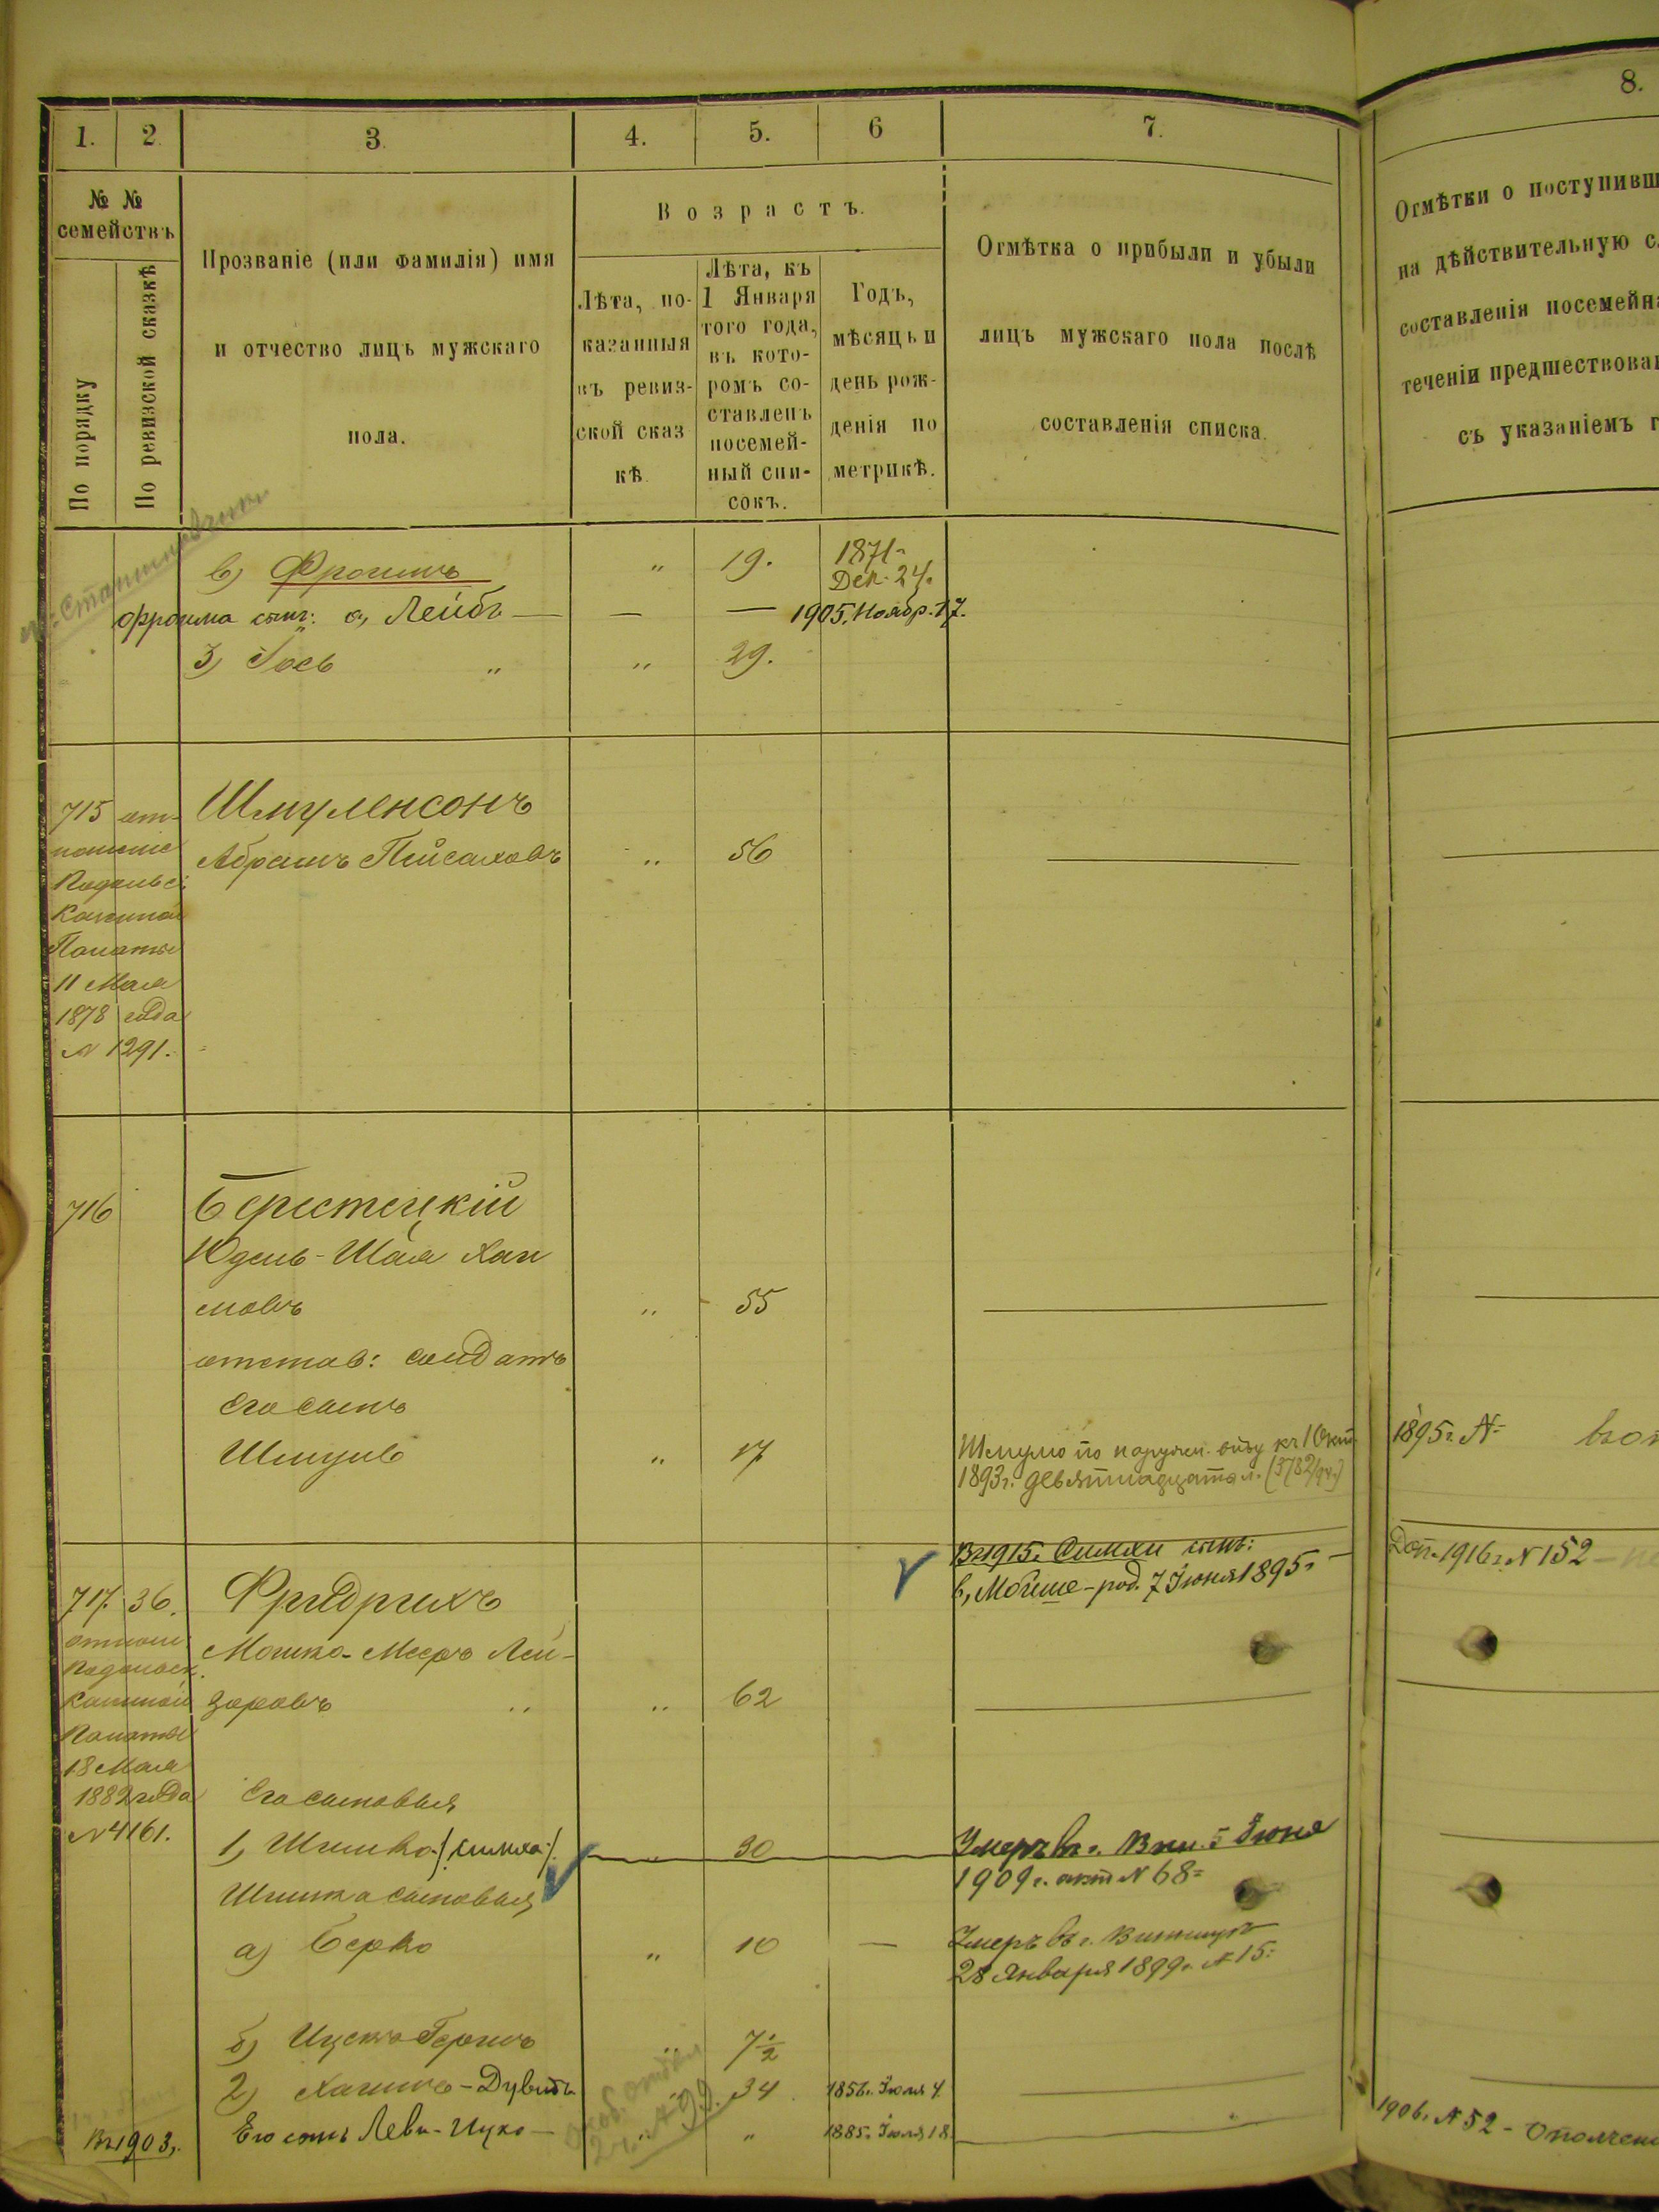 1.
2.
3.
4.
5.
6
7.
8.
№ №
семействъ
По порядку
По ревизской сказкѣ
Прозваніе (или фамилія) имя
и отчество лицъ мужскаго
пола.
Возрастъ.
Лѣта, по-
казанныя
въ ревиз-
ской сказ
кѣ.
Лѣта, къ
1 Января
того года,
въ кото-
ромъ со-
ставленъ
посемей-
ный спи-
сокъ.
Годъ,
мѣсяцъ и
день рож-
денія по
метрикѣ.
Отмѣтка о прибыли и убыли
лицъ мужскаго пола послѣ
составленія списка.
Отмѣтки о поступивш
на дѣйствительную с
составленія посемейн
теченіи предшествова
съ указаніемъ г
в) Фроимъ „ 19. 1871
Дек. 24.
Фроима сынъ: а, Лейбъ — — — 1905. Ноябр. 17.
3) Іось „ „ 29.
715 от-
ношеніе
Подольск.
Казенной
Палаты
11 Мая
1878 года
№ 1291.
Шмуленсонъ
Абрамъ Пейсаховъ „ 56
716
Берестецкій
Юдель-Шая Хаи
мовъ „ 55
отстав: солдатъ
Его сынъ
Шмуль „ 17
Шмуль по наружн. виду къ 1 Окт.
1893 г. девятнадцать л.
1895 г. №
717. 36.
отнош:
Подольск.
Казенной
Палаты
18 Мая
1882 года
№ 4161.
Фридрихъ
Мошко-Мееръ Лей-
зоровъ „ „ 62
Въ 1915 г. Симхи сынъ:
в, Мойше - род. 7 Іюня 1895 г. —
Доп. 1916 г. № 152 —
Его сыновья
1, Шимко /Симха/ „ 30
Умеръ въ г. Вин. 5 Іюня
1909 г. актъ № 68
Шимка сыновья
а) Берко „ 10 —
Умеръ въ г. Винницѣ
28 Января 1899 г. № 15
б) Ицекъ Гершъ „ 7½
2) Хаимъ-Дувидъ „ 34 1856 г. Іюля 4.
Въ 1903 г. Его сынъ Леви-Ицко — „ „ 1885 г. Іюля 18.
1906 г. № 52 - Ополчен